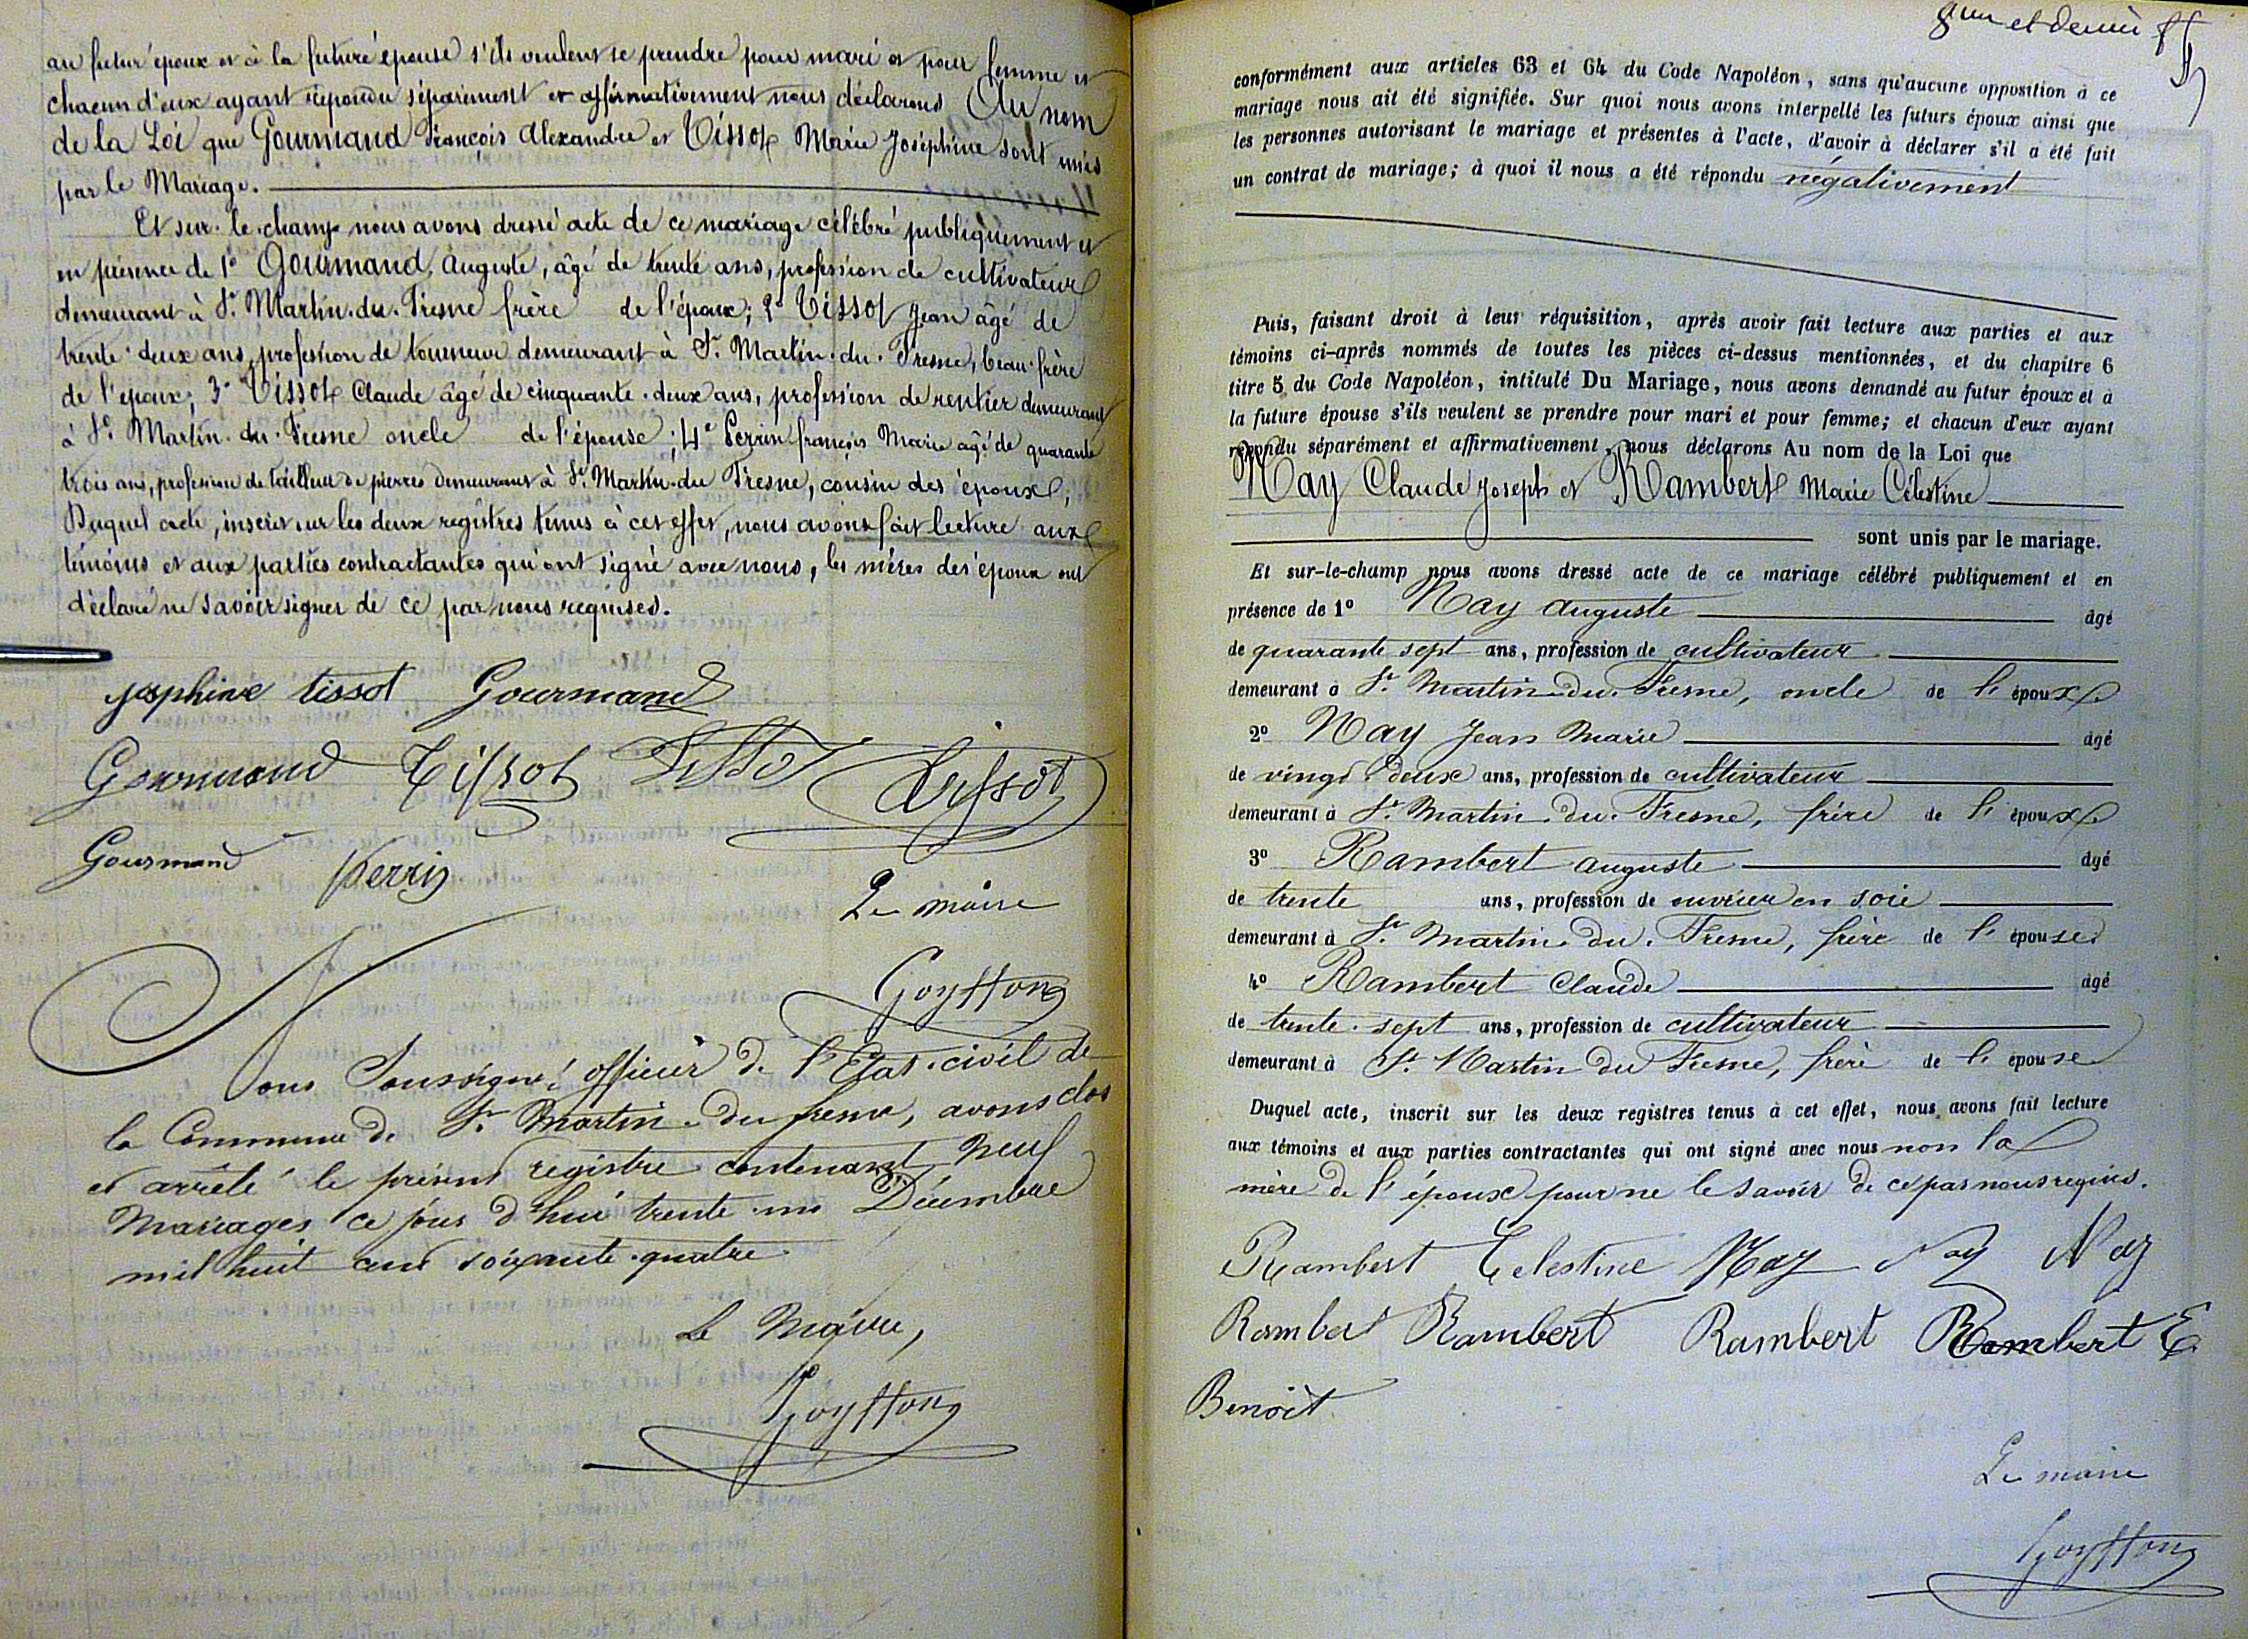 au futur époux et à la future épouse s'ils veulent se prendre pour mari et pour femme et
chacun d'eux ayant répondu séparément et affirmativement nous déclarons Au nom
de la Loi que Gourmand François Alexandre et Tissot Marie Joséphine sont unis
par le Mariage.
Et sur-le-champ nous avons dressé acte de ce mariage célébré publiquement et
en présence de 1° Gourmand, Auguste, âgé de trente ans, profession de cultivateur
demeurant à St. Martin-du-Fresne frère de l'époux; 2° Tissot Jean âgé de
trente-deux ans, profession de tourneur demeurant à St. Martin-du-Fresne, beau-frère
de l'époux; 3° Tissot Claude âgé de cinquante-deux ans, profession de rentier demeurant
à St. Martin-du-Fresne oncle de l'épouse; 4° Perrin françois Marie âgé de quarante
trois ans, profession de tailleur de pierres demeurant à St. Martin-du Fresne, cousin des époux,
Duquel acte, inscrit sur les deux registres tenus à cet effet, nous avons fait lecture aux
témoins et aux parties contractantes qui ont signé avec nous, les mères des époux ont
déclaré ne savoir signer de ce par nous requises.
josphine tissot Gourmand
Gourmand Tissot Tissot Tissot
Gourmand Perrin
Le maire
Goyffon
Nous Soussigné officier de l'Etat-civil de
la Commune de St. Martin-du fresne, avons clos
et arrêté le présent registre contenant neuf
Mariages ce jour d'hui trente-un Décembre
mil huit cent soixante-quatre
Le Maire,
Goyffon
et dernier
conformément aux articles 63 et 64 du Code Napoléon, sans qu'aucune opposition à ce
mariage nous ait été signifiée. Sur quoi nous avons interpellé les futurs époux ainsi que
les personnes autorisant le mariage et présentes à l'acte, d'avoir à déclarer s'il a été fait
un contrat de mariage; à quoi il nous a été répondu négativement
Puis, faisant droit à leur réquisition, après avoir fait lecture aux parties et aux
témoins ci-après nommés de toutes les pièces ci-dessus mentionnées, et du chapitre 6
titre 5 du Code Napoléon, intitulé Du Mariage, nous avons demandé au futur époux et à
la future épouse s'ils veulent se prendre pour mari et pour femme; et chacun d'eux ayant
répondu séparément et affirmativement, nous déclarons Au nom de la Loi que
Nay Claude Joseph et Rambert Marie Célestine
sont unis par le mariage.
Et sur-le-champ nous avons dressé acte de ce mariage célébré publiquement et en
présence de 1° Nay Auguste âgé
de quarante sept ans, profession de cultivateur
demeurant à St. Martin-du-Fresne, oncle de l'époux
2° Nay Jean Marie âgé
de vingt-deux ans, profession de cultivateur
demeurant à St. Martin-du-Fresne, frère de l'époux
3° Rambert Auguste âgé
de trente ans, profession de ouvrier en soie
demeurant à St. Martin-du-Fresne, frère de l'épouse
4° Rambert Claude âgé
de trente-sept ans, profession de cultivateur
demeurant à St. Martin du Fresne, frère de l'épouse
Duquel acte, inscrit sur les deux registres tenus à cet effet, nous avons fait lecture
aux témoins et aux parties contractantes qui ont signé avec nous non la
mère de l'époux pour ne le savoir de ce par nous requis.
Rambert Celestine Nay Nay Nay
Rambert Rambert Rambert Rambert E
Benoit
Le maire
Goyffon